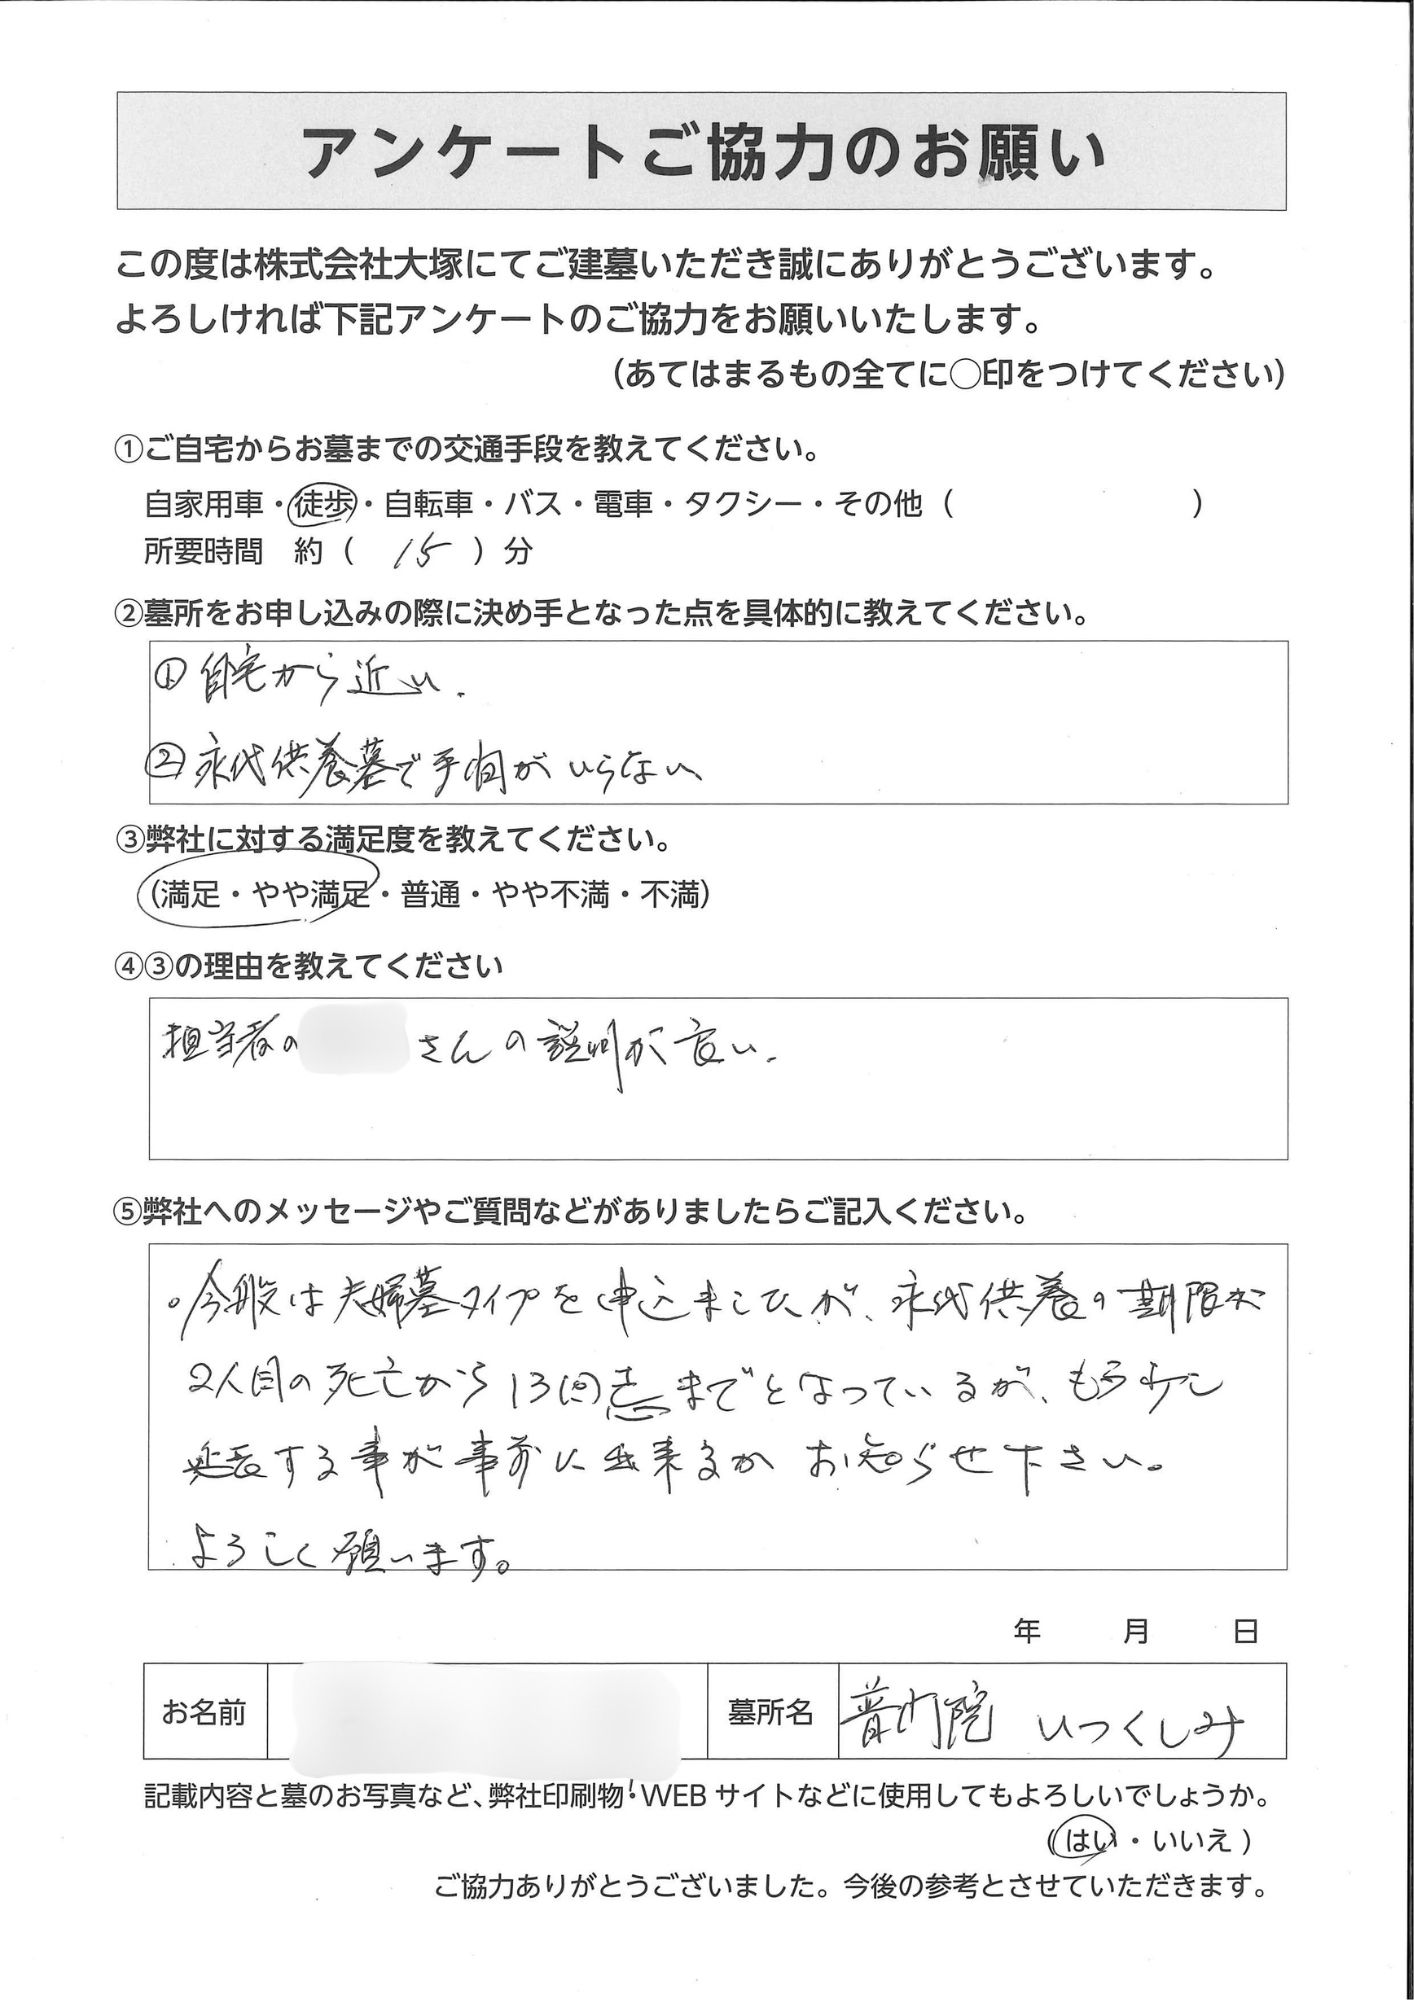 アンケートご協力のお願い
この度は株式会社大塚にてご建墓いただき誠にありがとうございます。
よろしければ下記アンケートのご協力をお願いいたします。
（あてはまるもの全てに○印をつけてください）
①ご自宅からお墓までの交通手段を教えてください。
自家用車・徒歩・自転車・バス・電車・タクシー・その他（　　　　　　　　）
所要時間　約（　15　）分
②墓所をお申し込みの際に決め手となった点を具体的に教えてください。
①自宅から近い.
②永代供養墓で手間がいらない
③弊社に対する満足度を教えてください。
（満足・やや満足・普通・やや不満・不満）
④③の理由を教えてください
担当者の　　　さんの説明が良い.
⑤弊社へのメッセージやご質問などがありましたらご記入ください。
。今般は夫婦墓タイプを申込ましたが、永代供養の期限が
2人目の死亡から13回忌までとなっているが、もう少し
延長する事が事前に出来るか お知らせ下さい。
よろしく願います。
年　　月　　日
お名前　　　墓所名　普門院 いつくしみ
記載内容と墓のお写真など、弊社印刷物・WEBサイトなどに使用してもよろしいでしょうか。
（はい・いいえ）
ご協力ありがとうございました。今後の参考とさせていただきます。